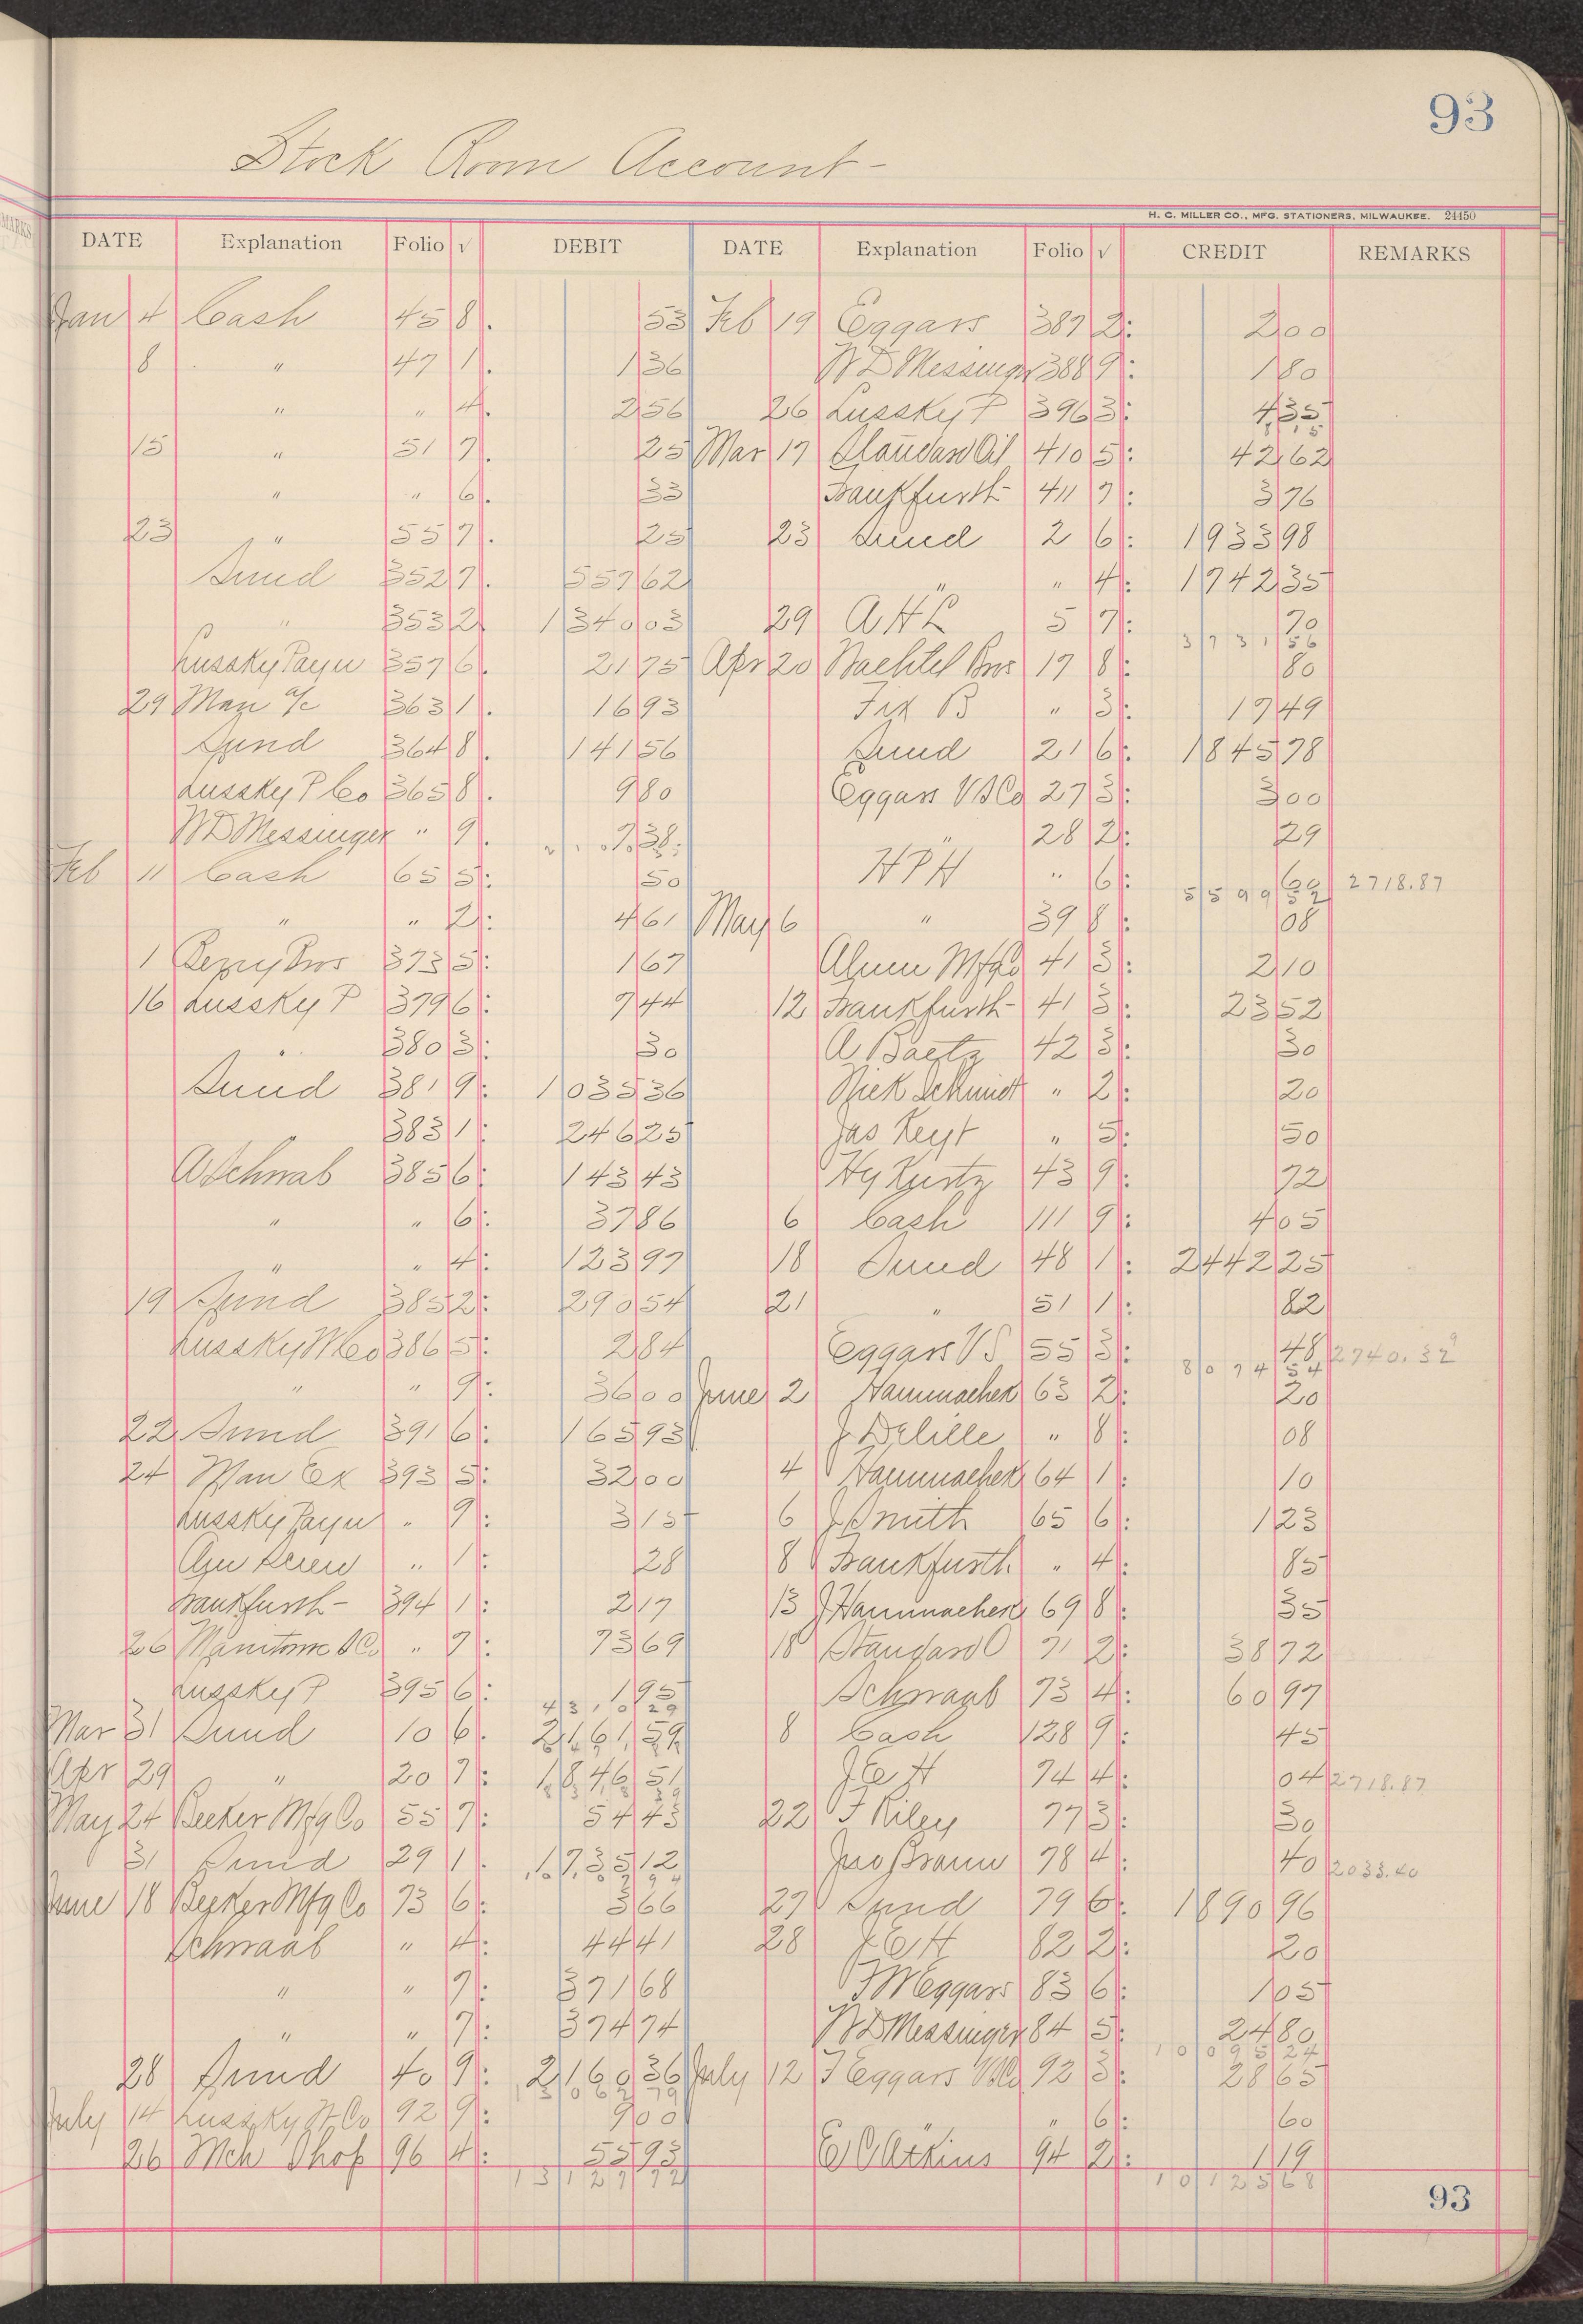 93
Stock Room Account -
H. C. MILLER CO., MFG. STATIONERS, MILWAUKEE. 24450
DATE Explanation Folio √ DEBIT DATE Explanation Folio √ CREDIT REMARKS
Jan 4 Cash 45 8 53 Feb 19 Eggars 387 2 2 00
8 " 47 1 1 36 W D Messinger 388 9 1 80
" " 4 2 56 26 Lussky P 396 3 4 35
15 " 51 7 25 Mar 17 Standard Oil 410 5 42 62
" " 6 33 Frankfurth 411 7 3 76
23 " 55 7 25 23 Sund 2 6 1933 98
Sund 352 7 557 62 " " 4 1742 35
" 353 2 1340 03 29 A H L 5 7 70
3731 56
Lussky Payn 357 6 21 75 Apr 20 Wachtel Bros 17 8 80
29 Man a/c 363 1 16 93 Fix B " 3 17 49
Sund 364 8 141 56 Sund 21 6 1845 78
Lussky P Co 365 8 9 80 Eggars V S Co 27 3 3 00
W D Messinger " 9 7 38 " 28 2 29
Feb 11 Cash 65 5 50 H P H " 6 60 2718.87
5599 52
" " 2 4 61 May 6 " 39 8 08
1 Bros 373 5 1 67 Alum Mfg Co 41 3 2 10
16 Lussky P 379 6 7 44 12 Frankfurth 41 3 23 52
" 380 3 30 A Baetz 42 3 30
Sund 381 9 1035 36 Nick Schmidt " 2 20
" 383 1 246 25 Jas Keyt " 5 50
A Schwab 385 6 143 43 Hy Kurtz 43 9 72
" " 6 37 86 6 Cash 111 9 4 05
" " 4 123 97 18 Sund 48 1 2442 25
19 Sund 385 2 290 54 21 " 51 1 82
Lussky W Co 386 5 2 84 Eggars V S 55 3 48 2740.32
8074 54
" " 9 36 00 June 2 Hammacher 63 2 20
22 Sund 391 6 165 93 J Delille " 8 08
24 Man Ex 393 5 32 00 4 Hammacher 64 1 10
Lussky Payn " 9 3 15 6 J Smith 65 6 1 23
" 1 28 8 Frankfurth " 4 85
Frankfurth - 394 1 2 17 13 J Hammacher 69 8 35
26 Manitowoc " 7 73 69 18 Standard O 71 2 38 72
Lussky P 395 6 1 95 Schwaab 73 4 60 97
Mar 31 Sund 10 6 2161 59 8 Cash 128 9 45
Apr 29 " 20 7 1846 51 J E H 74 4 04 2718.87
May 24 Becker Mfg Co 55 7 54 43 22 F Riley 77 3 30
31 Sund 29 1 1735 12 Jno Braun 78 4 40 2033.40
June 18 Becker Mfg Co 73 6 3 66 27 Sund 79 6 1890 96
Schwaab " 4 44 41 28 J E H 82 2 20
" " 7 371 68 F M Eggars 83 6 1 05
" " 7 374 74 W D Messinger 84 5 24 80
10095 24
28 Sund 40 9 2160 36 July 12 F Eggars V S Co 92 3 28 65
July 14 Lussky W Co 92 9 9 00 " 6 60
26 Mch Shop 96 4 55 93 E C Atkins 94 2 1 19
13127 72 10125 68
93